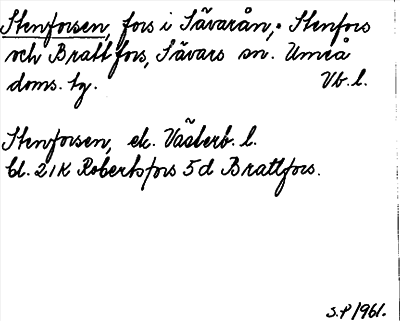 Stenforsen, fors i Sävarån, Stenfors
och Brattfors, Sävars sn. Umeå
doms. tg. Vb. l.
Stenforsen, ek. Västerb. l.
bl. 21K Robertsfors 5d Brattfors.
S.P 1961.